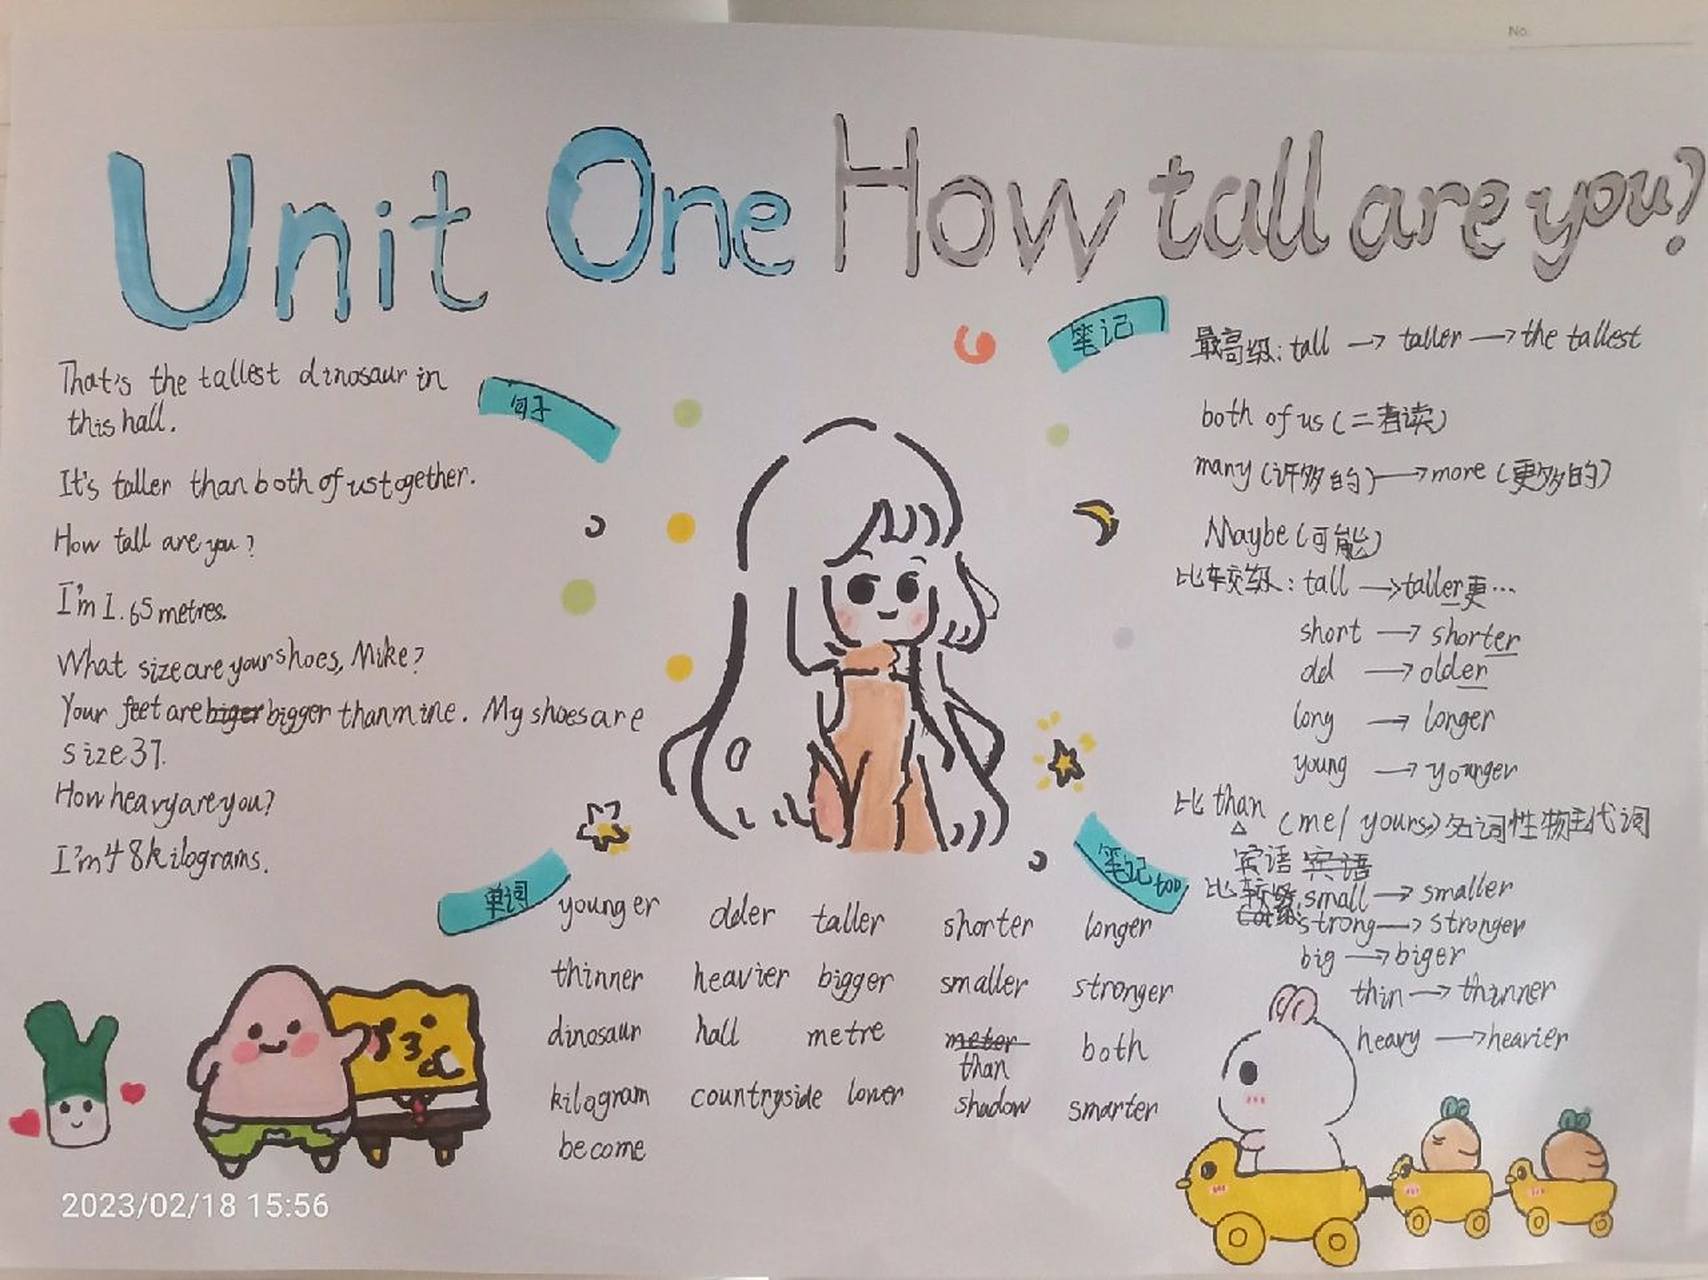 No.
Unit One How tall are you?
句子
That's the tallest dinosaur in
this hall.
It's taller than both of us together.
How tall are you?
I'm 1.65 metres.
What size are your shoes, Mike?
Your feet are biger bigger than mine. My shoes are
size 37.
How heavy are you?
I'm 48 kilograms.
笔记
最高级: tall → taller → the tallest
both of us (二者读)
many (许多的) → more (更多的)
Maybe (可能)
比较级: tall → taller 更…
short → shorter
old → older
long → longer
young → younger
比 than (me/ yours) 名词性物主代词
宾语 宾语
笔记 too
比较级: small → smaller
strong → stronger
big → biger
thin → thinner
heavy → heavier
单词
younger older taller shorter longer
thinner heavier bigger smaller stronger
dinosaur hall metre meter than both
kilogram countryside lower shadow smarter
become
2023/02/18 15:56